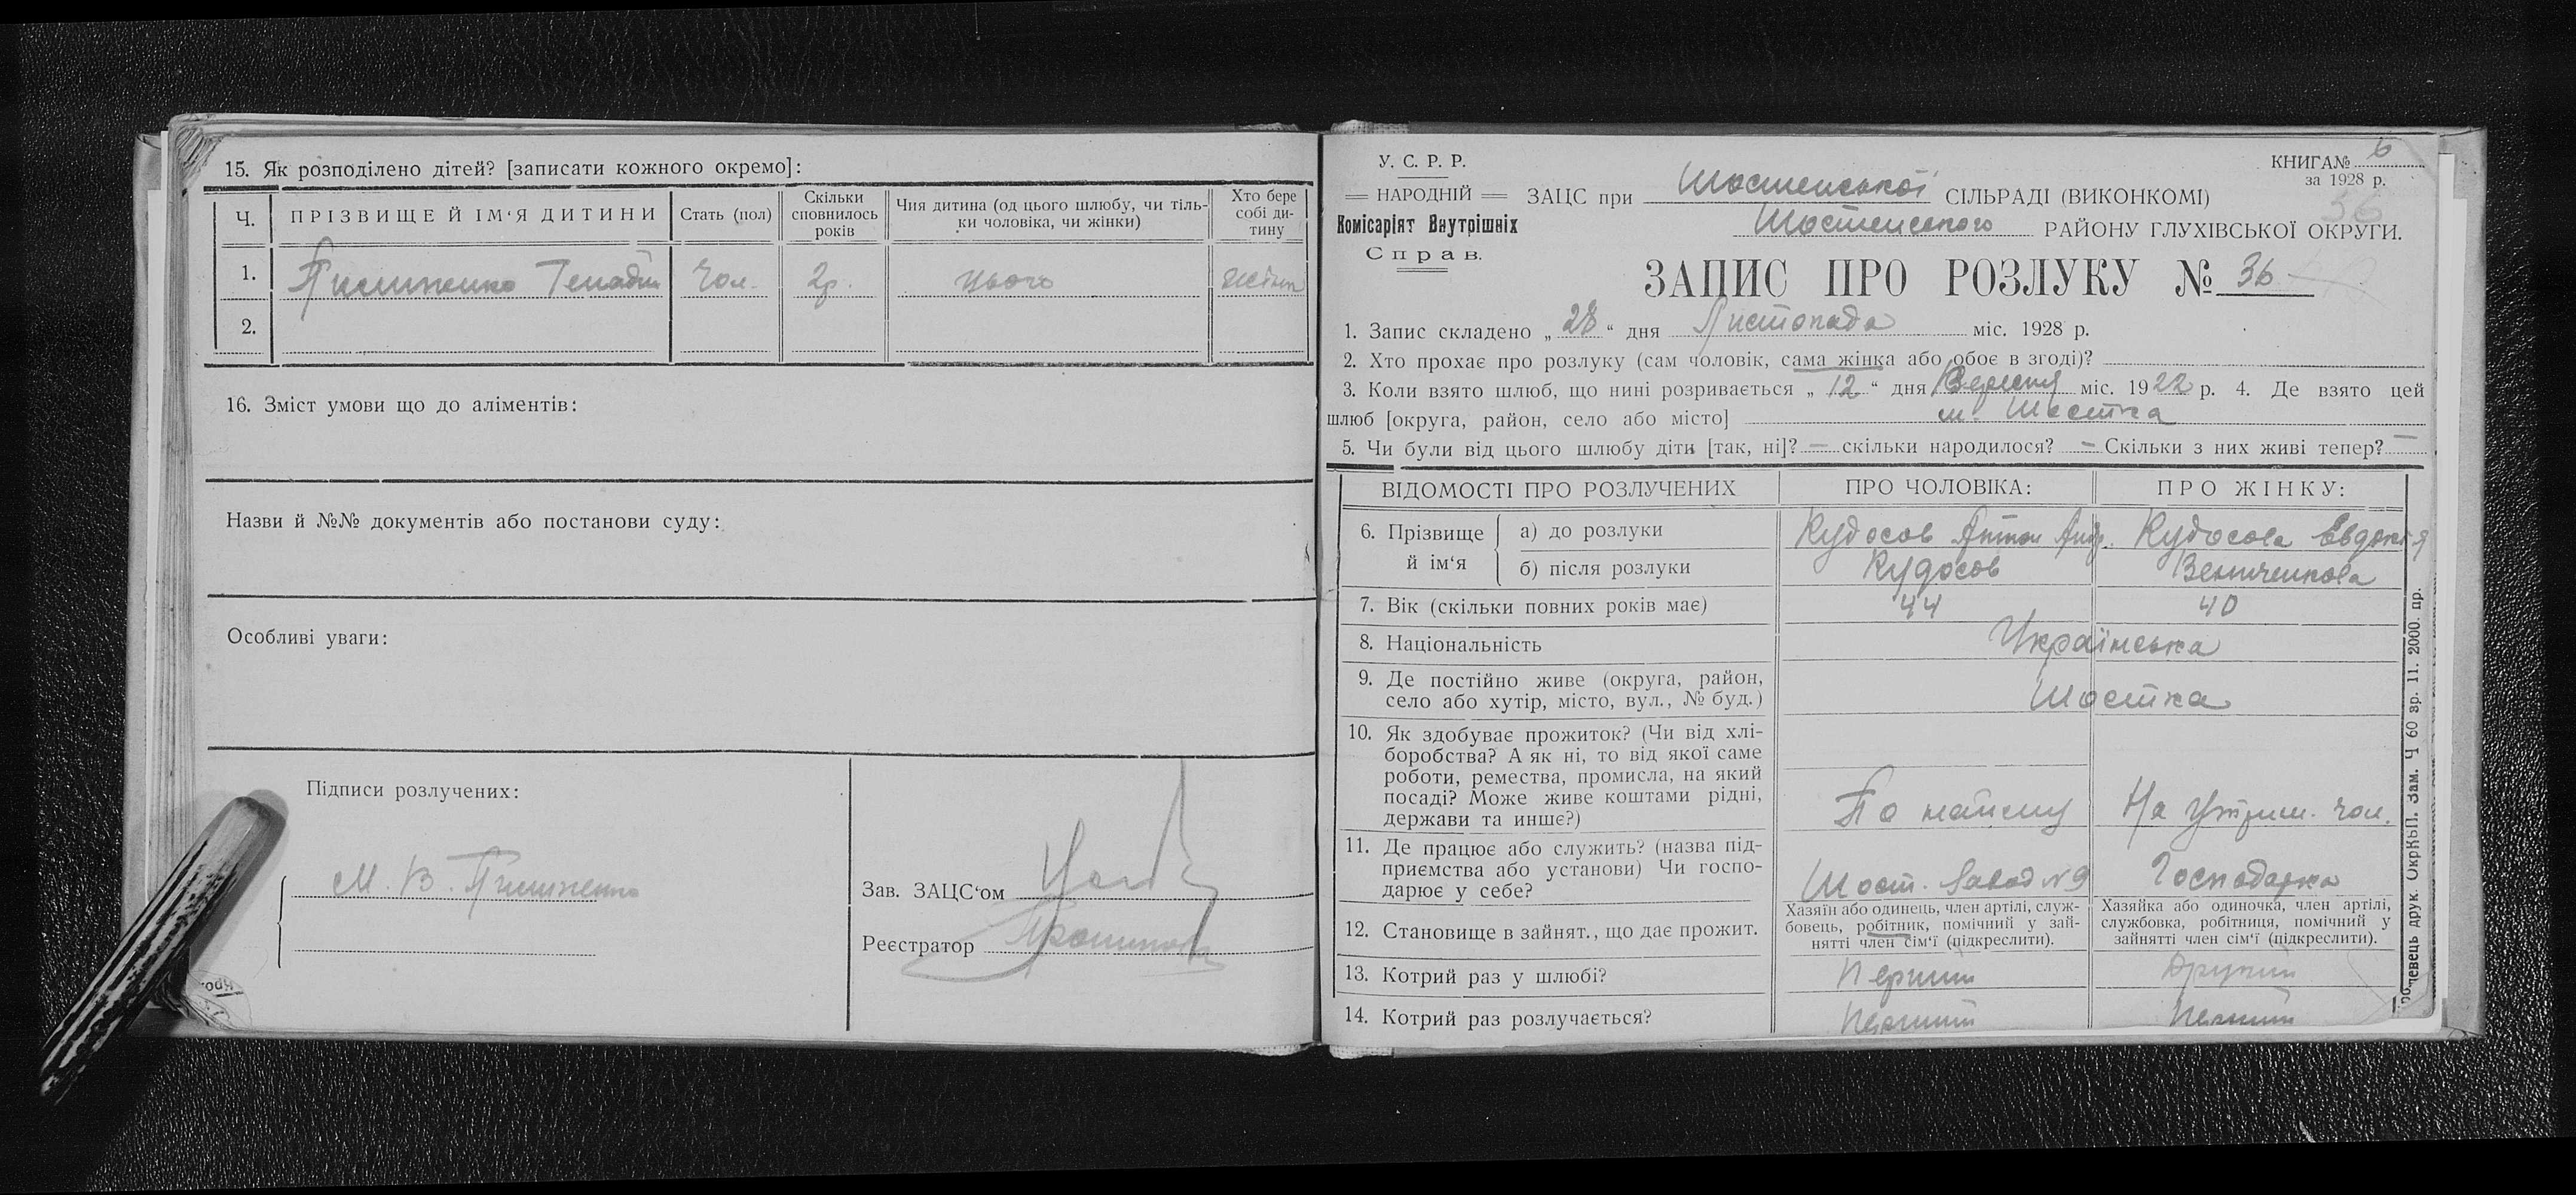 15. Як розподілено дітей? [записати кожного окремо]:
Ч. ПРІЗВИЩЕ Й ІМ‘Я ДИТИНИ Стать (пол) Скільки сповнилось років Чия дитина (од цього шлюбу, чи тіль-ки чоловіка, чи жінки) Хто бере собі ди-тину
1. Генадій Чол. 2р. цього
2.
16. Зміст умови що до аліментів:
Назви й №№ документів або постанови суду:
Особливі уваги:
Підписи розлучених:
М. В.
Зав. ЗАЦС‘ом
Реєстратор
У. С. Р. Р.
НАРОДНІЙ
Комісаріят Внутрішніх
Справ.
КНИГА № 6
за 1928 р.
36
ЗАЦС при Шостенської СІЛЬРАДІ (ВИКОНКОМІ)
Шостенського РАЙОНУ ГЛУХІВСЬКОЇ ОКРУГИ.
ЗАПИС ПРО РОЗЛУКУ № 36
1. Запис складено „ 28 “ дня Листопада міс. 1928 р.
2. Хто прохає про розлуку (сам чоловік, сама жінка або обоє в згоді)?
3. Коли взято шлюб, що нині розривається „ 12 “ дня Вересня міс. 1922 р. 4. Де взято цей
шлюб [округа, район, село або місто] м. Шостка
5. Чи були від цього шлюбу діти [так, ні]? — скільки народилося? — Скільки з них живі тепер? —
ВІДОМОСТІ ПРО РОЗЛУЧЕНИХ ПРО ЧОЛОВІКА: ПРО ЖІНКУ:
6. Прізвище й ім‘я
а) до розлуки Кудосов Антон Анд. Кудосова Евдокія
б) після розлуки Кудосов
7. Вік (скільки повних років має) 44 40
8. Національність Українська
9. Де постійно живе (округа, район,
село або хутір, місто, вул., № буд.) Шостка
10. Як здобуває прожиток? (Чи від хлі-
боробства? А як ні, то від якої саме
роботи, ремества, промисла, на який
посаді? Може живе коштами рідні,
держави та инше?) По найму На утрим. чол.
11. Де працює або служить? (назва під-
приємства або установи) Чи госпо-
дарює у себе? Шост. Завод №9 Господарка
12. Становище в зайнят., що дає прожит.
Хазяїн або одинець, член артілі, служ-
бовець, робітник, помічний у зай-
нятті член сім‘ї (підкреслити).
Хазяйка або одиночка, член артілі,
службовка, робітниця, помічний у
зайнятті член сім‘ї (підкреслити).
13. Котрий раз у шлюбі? Перший Другий
14. Котрий раз розлучається? Перший Перший
друк. ОкрКВП. Зам. Ч 60 зр. 11. 2000. пр.